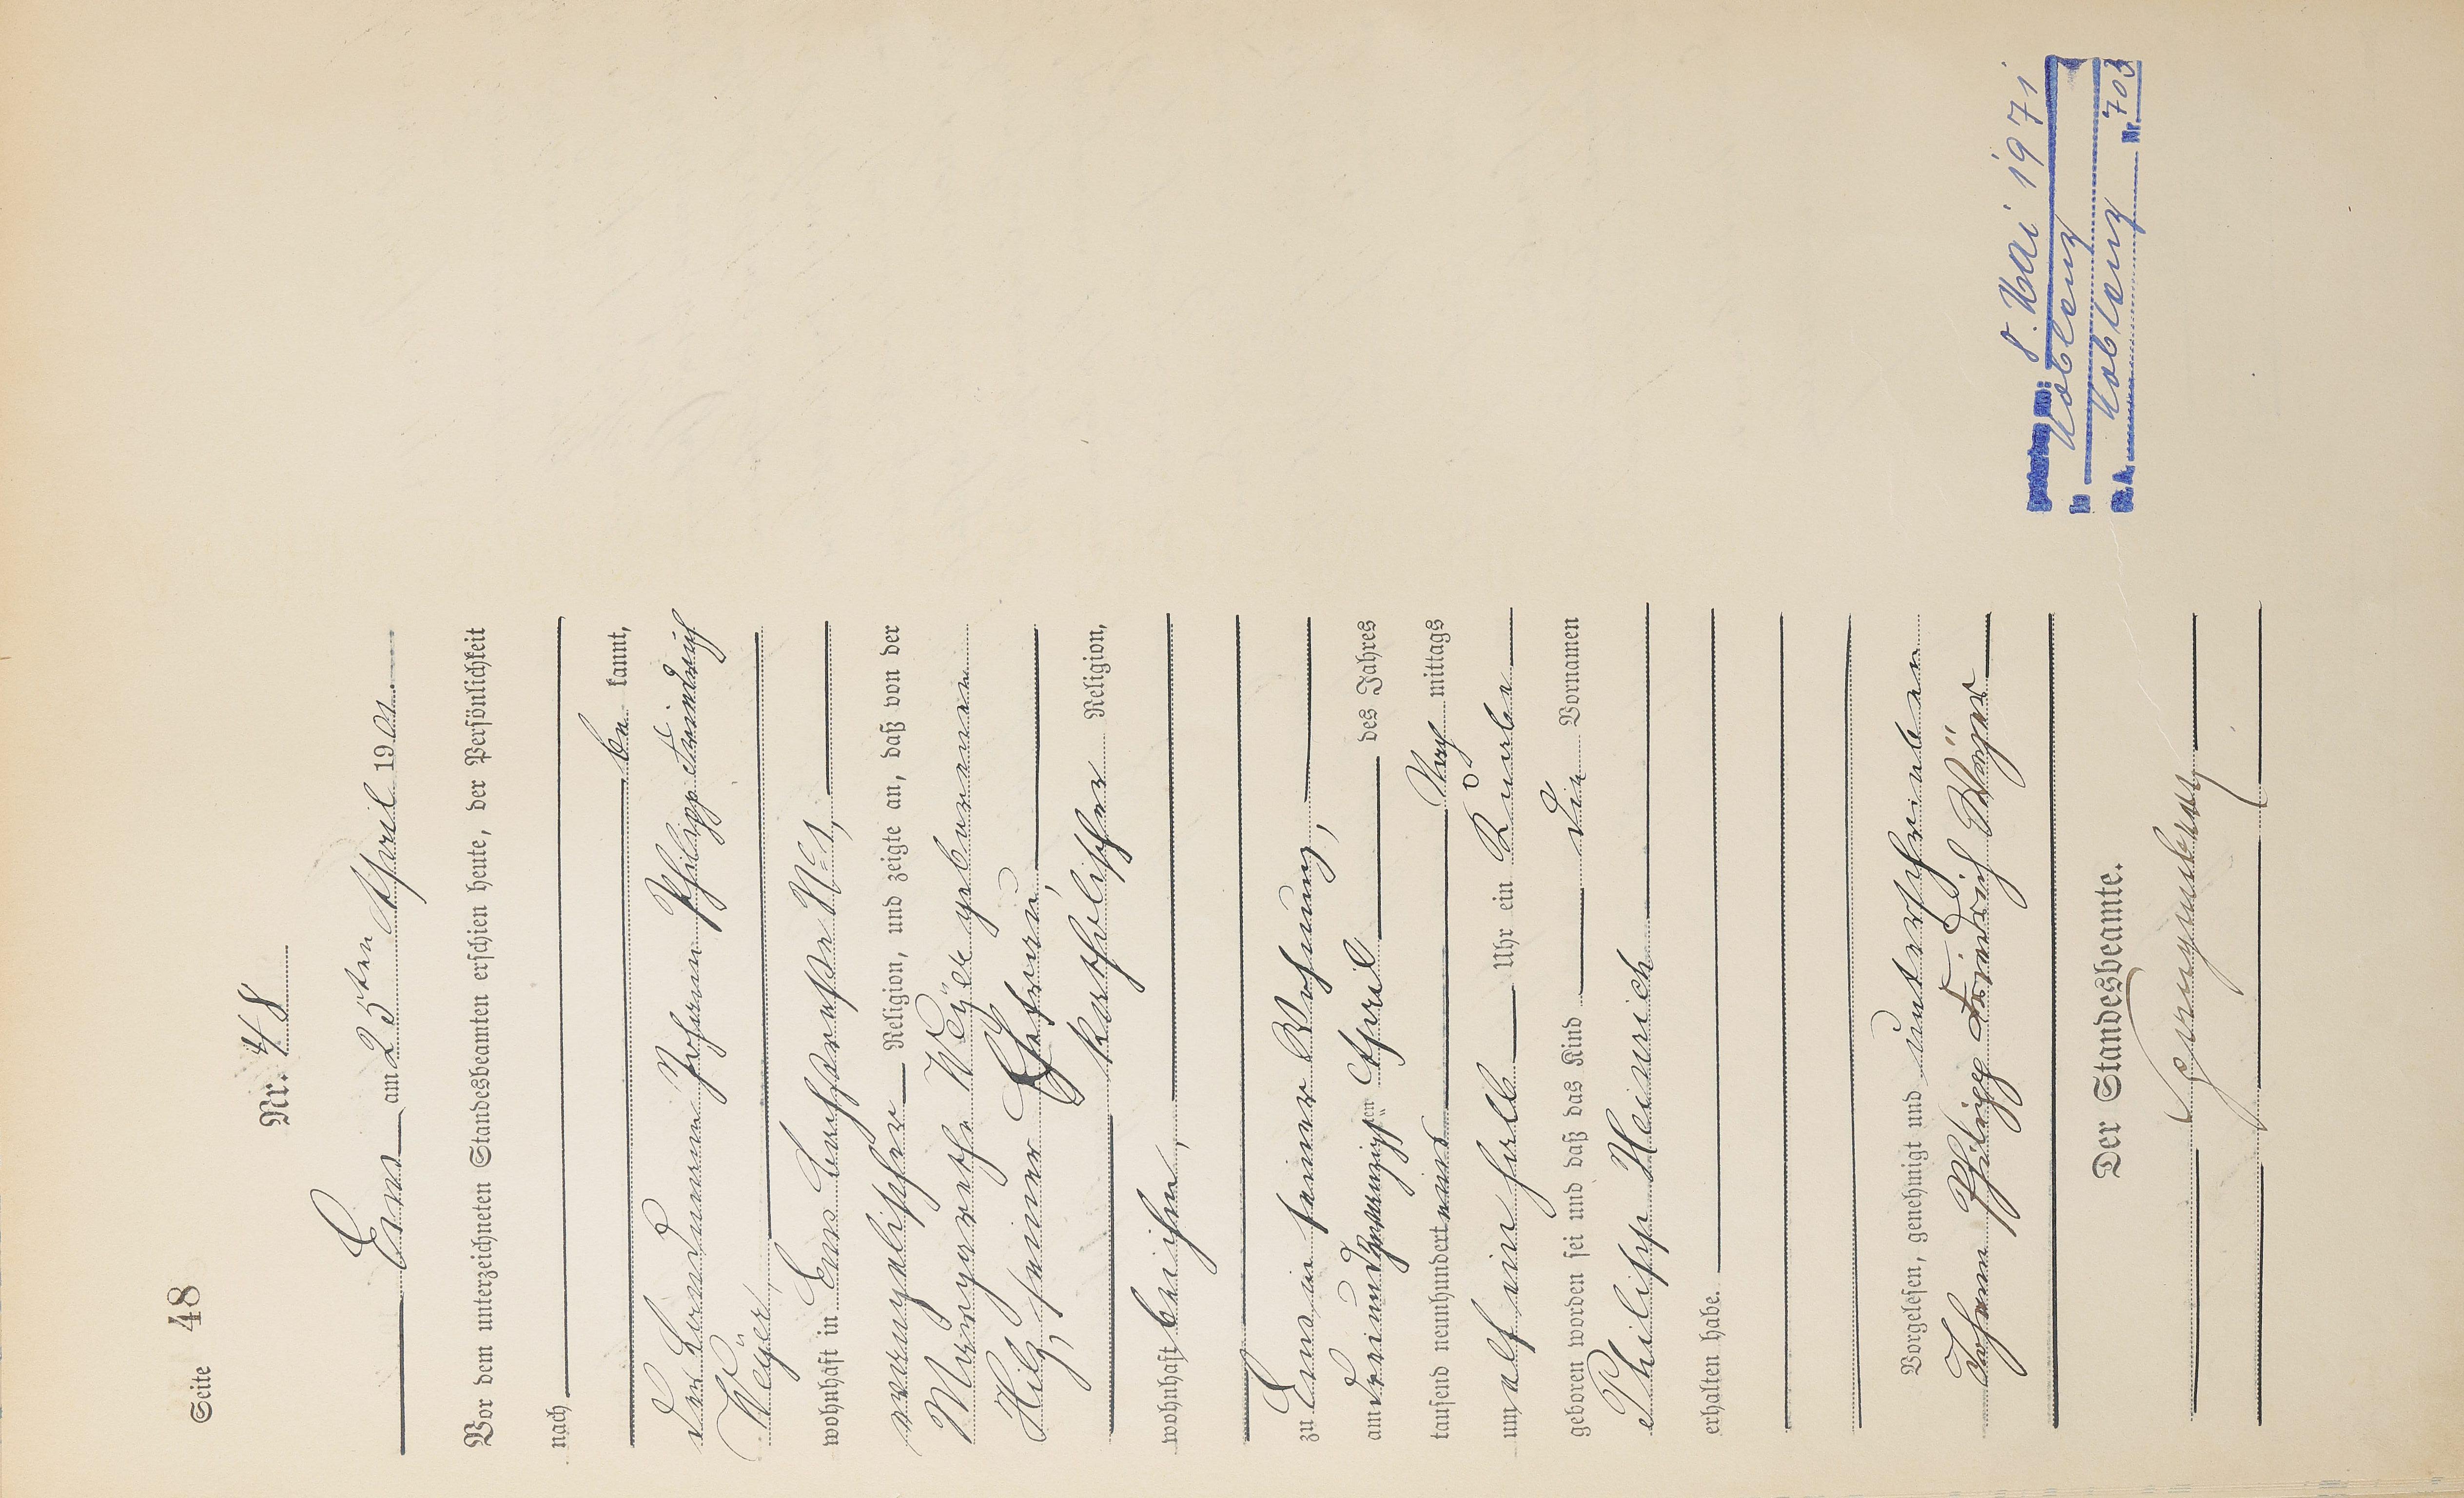 Seite 48
Nr. 48
Ems am 25ten April 1901.
Vor dem unterzeichneten Standesbeamten erschien heute, der Persönlichkeit
nach
be kannt,
der Johann Philipp Friedrich
Weÿer,
wohnhaft in Ems, Bachstraße No 1,
evangelischer Religion, und zeigte an, daß von der
Margarethe Weÿer geborenen
Hilz, seiner Ehefrau,
katholischer Religion,
wohnhaft bei ihm,
zu Ems in seiner Wohnung,
am dreiundzwanzigsten April des Jahres
tausend neunhundert eins Nach mittags
um elf ein halb Uhr ein Knabe
geboren worden sei und daß das Kind die Vornamen
Philipp Heinrich
erhalten habe.
Vorgelesen, genehmigt und unterschrieben
Johann Philipp Friedrich Weÿer
Der Standesbeamte.
Gestorben am: 8. Mai 1971
in Koblenz
St. A. Koblenz Nr. 703